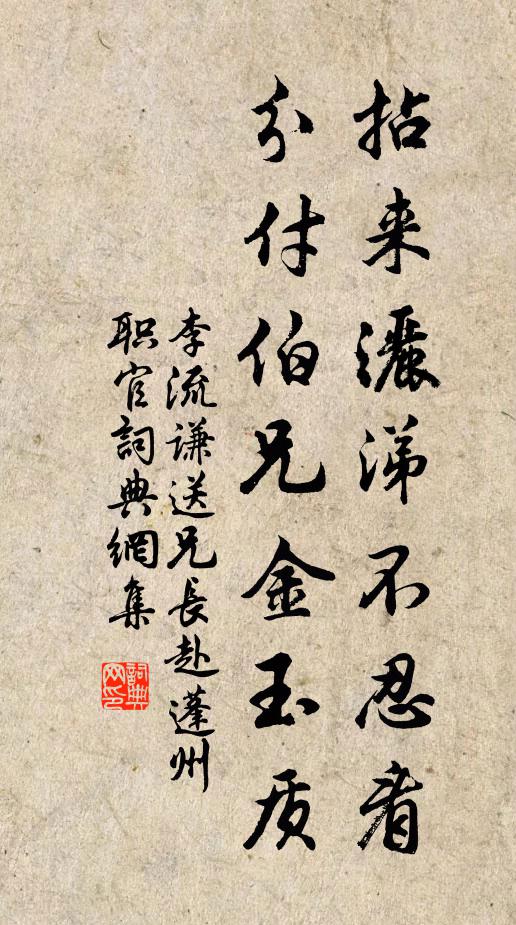 拈来灑涕不忍看
分付伯兄金玉质
李流谦送兄長赴蓬州
职官詞典網集
詞典网印